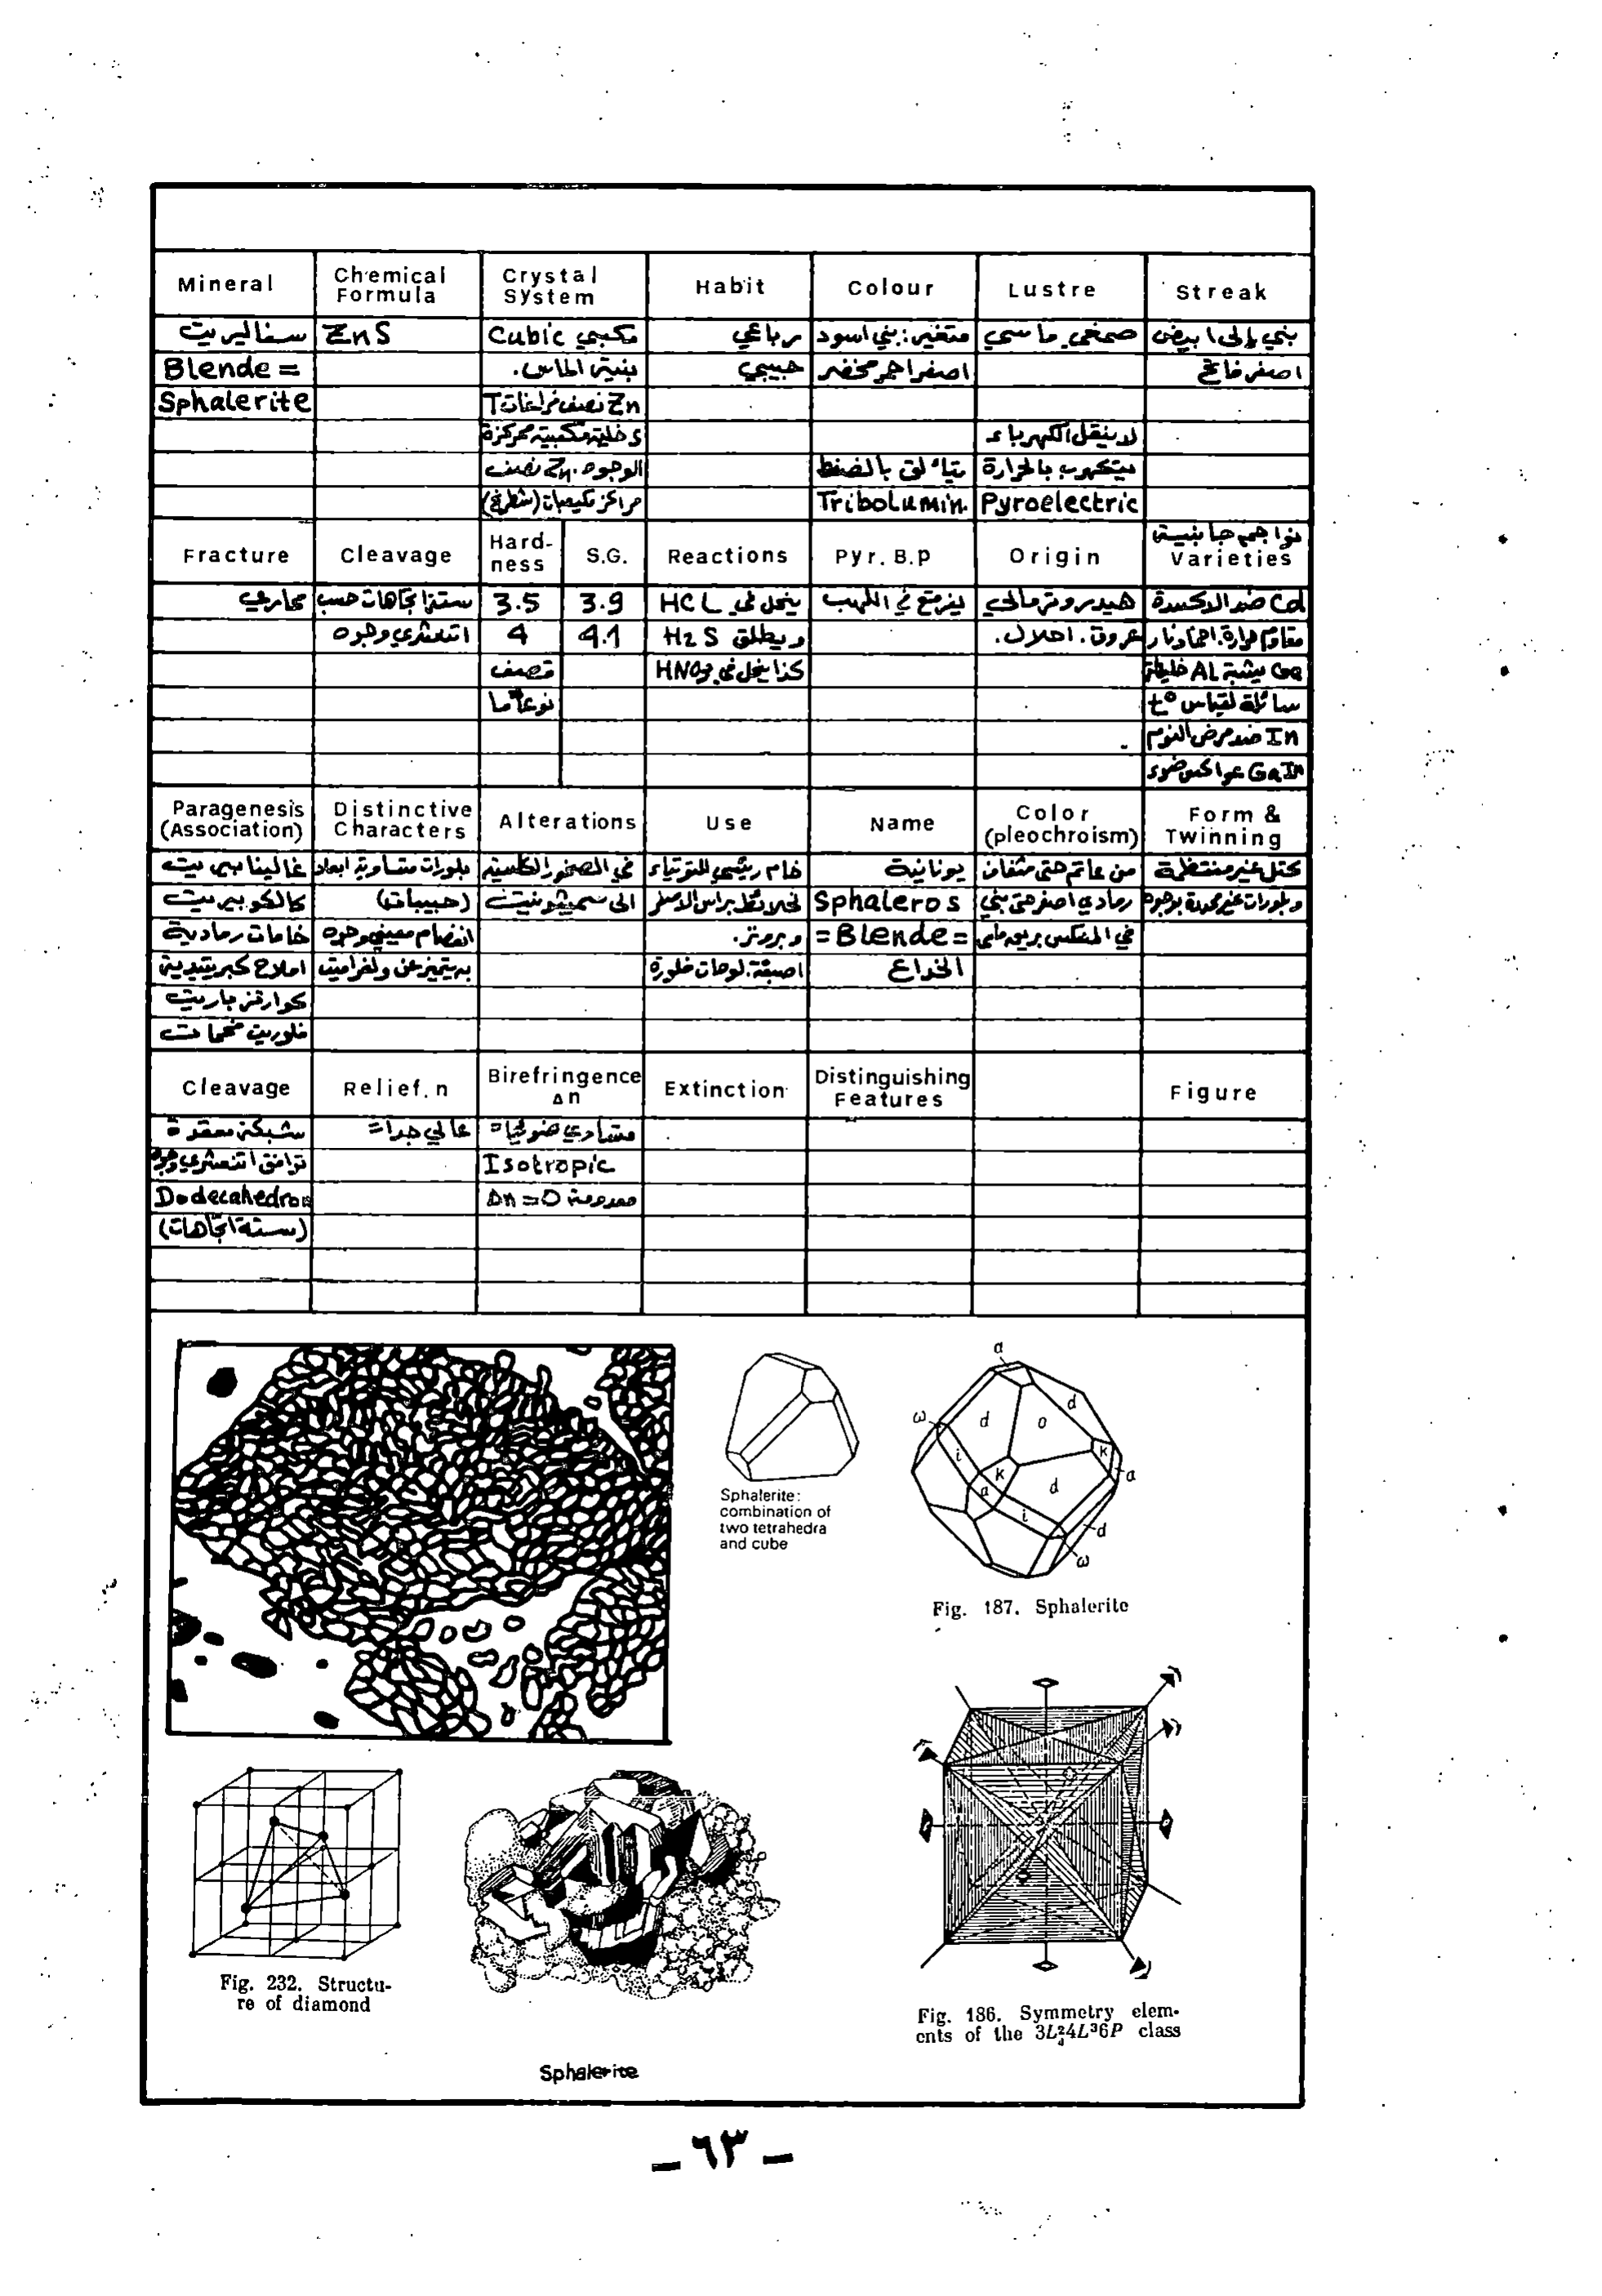 Mineral
Chemical Formula
Crystal System
Habit
Colour
Lustre
Streak
سفاليريت
ZnS
مكعبي Cubic
رباعي
متغير: بني اسود
صمغي ماسي
بني إلى ابيض
Blende =
بنية الماس.
حبيبي
اصفر احمر مخضر
اصفر فاتح
Sphalerite
Zn نصف فراغات T
خلية مكعبية ممركزة
لا ينقل الكهرباء
الوجوه. Zn نصف
يتألق بالضغط
يتكهرب بالحرارة
مراكز مكيعبات (شطرنج)
Tribolumin.
Pyroelectric
Fracture
Cleavage
Hard-ness
S.G.
Reactions
Pyr. B.p
Origin
نواجم جانبية
Varieties
محاري
ستة اتجاهات حسب
3.5
3.9
ينحل في HCL
يفرقع في اللهب
هيدروترمالي
Cd ضد الاكسدة
اثنعشري وجوه
4
4.1
ويطلق H2S
عروق. احلال.
مقاوم حرارة.
قصف
كذا ينحل في HNO3
Ge يشبه AL
نوعاً ما
سائلة لقياس t°
In ضد مرض النوم
GaIn عواكس ضوء
Paragenesis (Association)
Distinctive Characters
Alterations
Use
Name
Color (pleochroism)
Form & Twinning
غالينا بيريت
بلورات متساوية ابعاد
في الصخور الكلسية
خام رئيسي للتوتياء
يونانية
من عاتم حتى شفاف
كتل غير منتظمة
كالكوبيريت
(حبيبات)
الى سميثونيت
Sphaleros
رمادي اصفر حتى بني
وبلورات غير محددة بوجوه
خامات رمادية
انفصام معيني وجوه
وبرونز.
=Blende=
في المنعكس بريق ماسي
املاح كبريتيدية
به يتميز عن ولفراميت
اصبغة. لوحات فلورة
الخداع
كوارتز باريت
فلوريت فحمات
Cleavage
Relief. n
Birefringence Δn
Extinction
Distinguishing Features
Figure
شبكة معقدة
عالي جداً=
متساوي ضوئياً=
توافق اثنعشري وجوه
Isotropic
Dodecahedron
معدومة Δn=0
(ستة اتجاهات)
Sphalerite:
combination of
two tetrahedra
and cube
a
d
d
o
ω
i
K
K
a
a
d
i
d
ω
Fig. 187. Sphalerite
Fig. 232. Structu-
re of diamond
Sphalerite
Fig. 186. Symmetry elem-
ents of the 3L²₄4L³6P class
– ٦٣ –